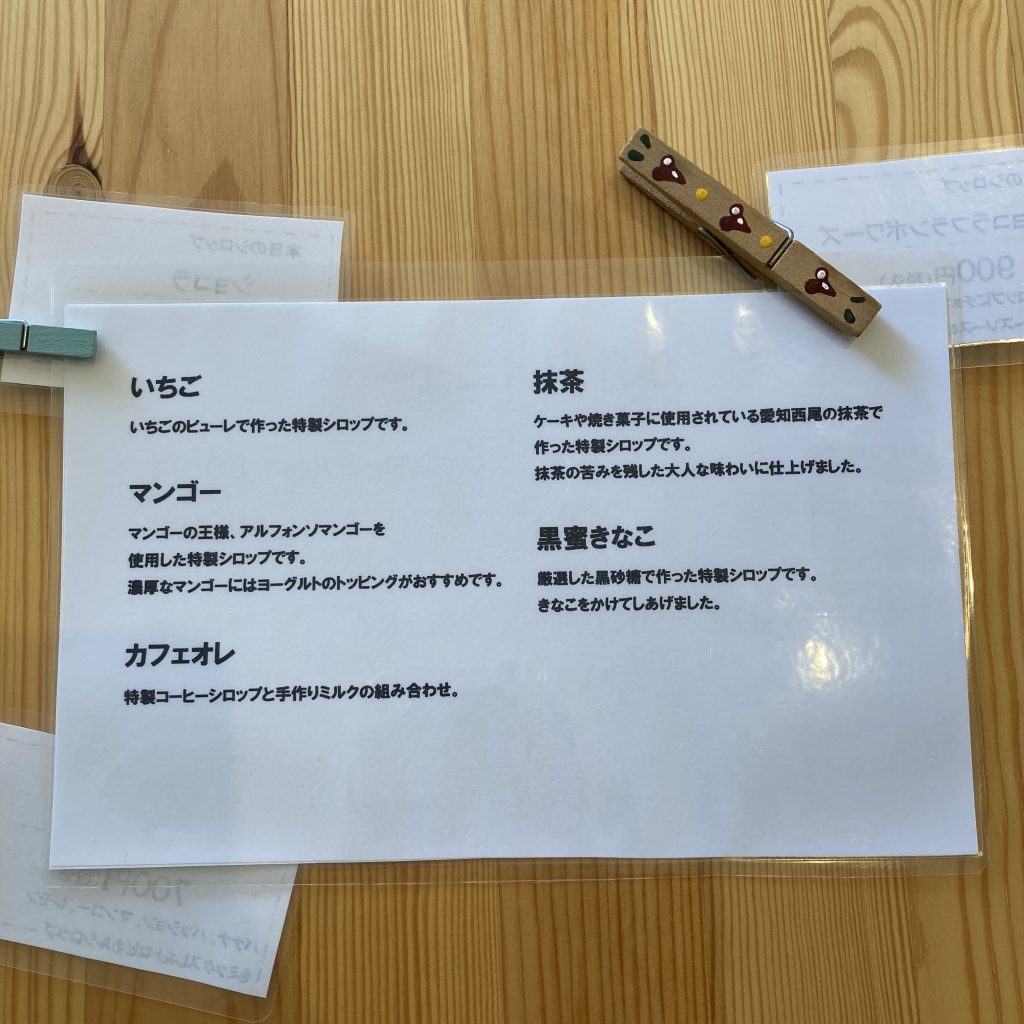 いちご
いちごのピューレで作った特製シロップです。
マンゴー
マンゴーの王様、アルフォンソマンゴーを
使用した特製シロップです。
濃厚なマンゴーにはヨーグルトのトッピングがおすすめです。
カフェオレ
特製コーヒーシロップと手作りミルクの組み合わせ。
抹茶
ケーキや焼き菓子に使用されている愛知西尾の抹茶で
作った特製シロップです。
抹茶の苦みを残した大人な味わいに仕上げました。
黒蜜きなこ
厳選した黒砂糖で作った特製シロップです。
きなこをかけてしあげました。
本日のシロップ
ショコラ
のシロップ
ョコラフランボワーズ
900円(税込)
700円
バナナ、パッション、マンゴー、レモン